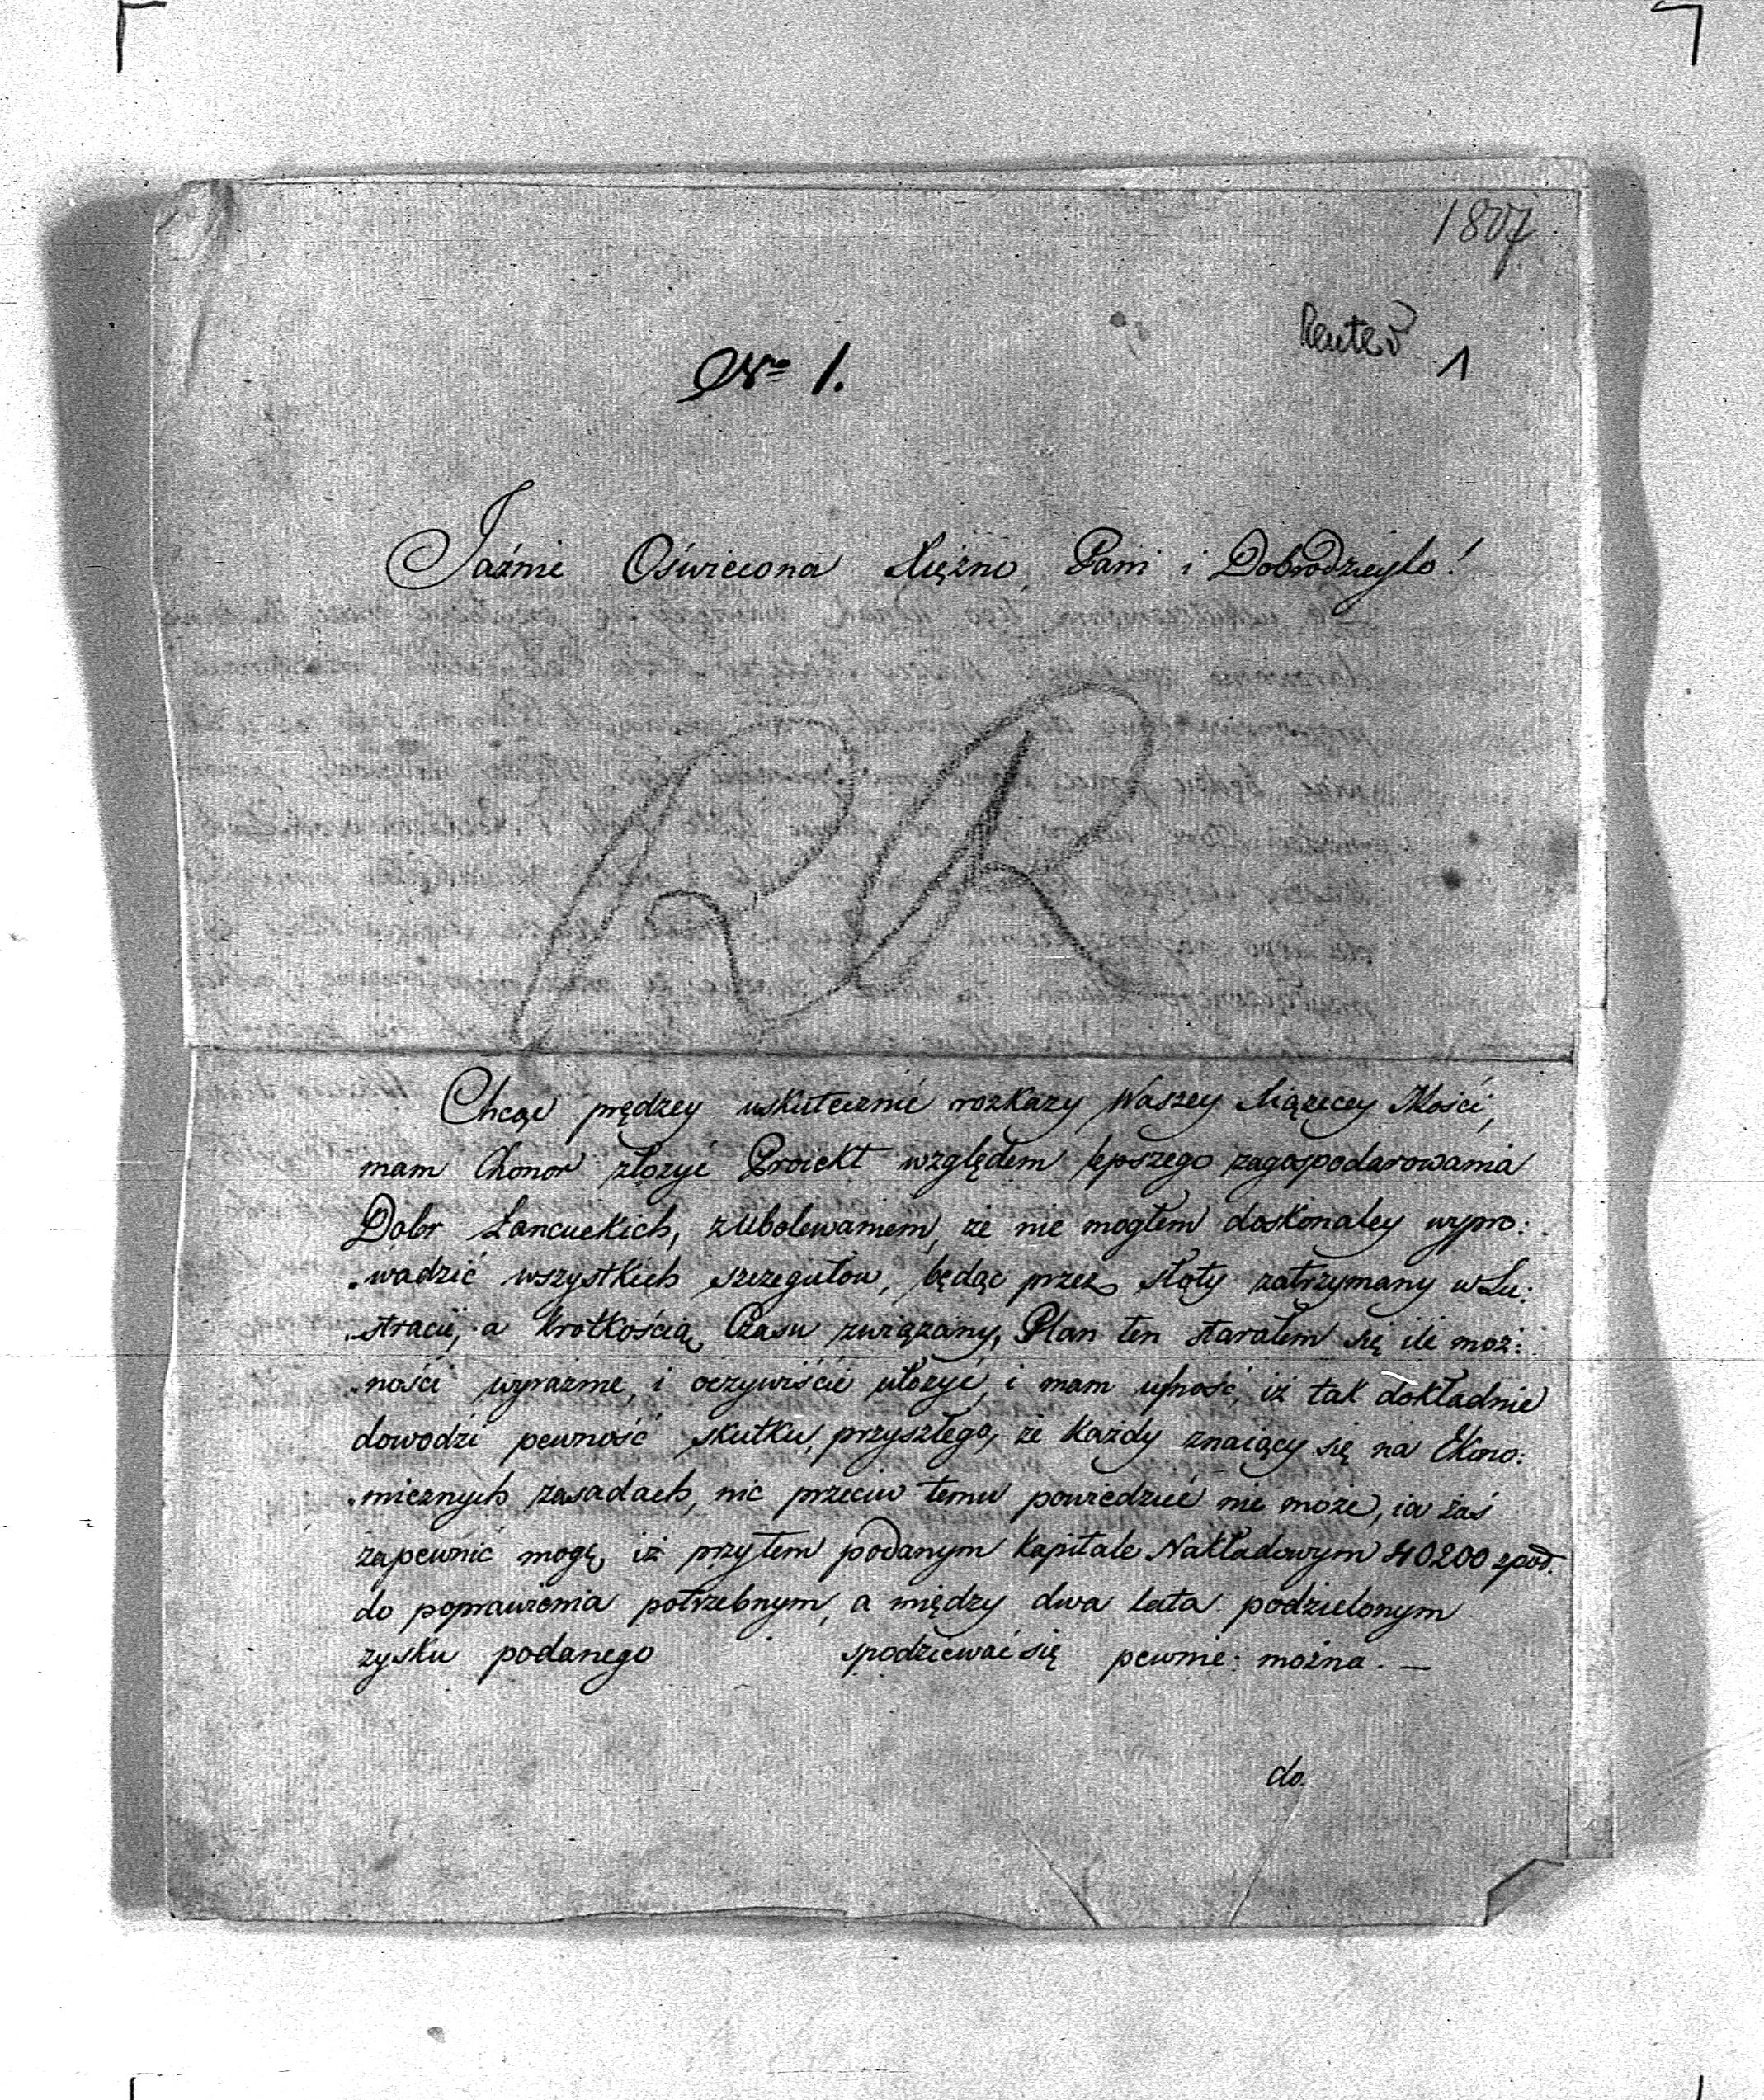 1807
Reuter
1
Nro 1.
Jaźnie Oświecona Xiężno Pani i Dobrodzieyko!
RR
Chcąc prędzey uskutecznić rozkazy Waszey Xiążęcey Mości,
mam Chonor złożyć Proiekt względem lepszego zagospodarowania
Dobr Łancuckich, z Ubolewaniem, że nie mogłem doskonaley wypro:
wadzić wszystkich szczegułow, będąc przez słoty zatrzymany w Lu:
stracii, a krotkością Czasu związany, Plan ten starałem się ile moż:
ności wyraźnie, i oczywiście ułożyć, i mam ufność, iż tak dokładnie
dowodzi pewność skutku, przyszłego, że każdy znaiący się na Ekono:
micznych zasadach, nic przeciw temu powiedzieć nie może, ia zaś
zapewnić mogę, iż przytem podanym Kapitale Nakładowym 40200
do poprawienia potrzebnym, a między dwa Lata podzielonym
zysku podanego spodziewać się pewnie: można. —
do